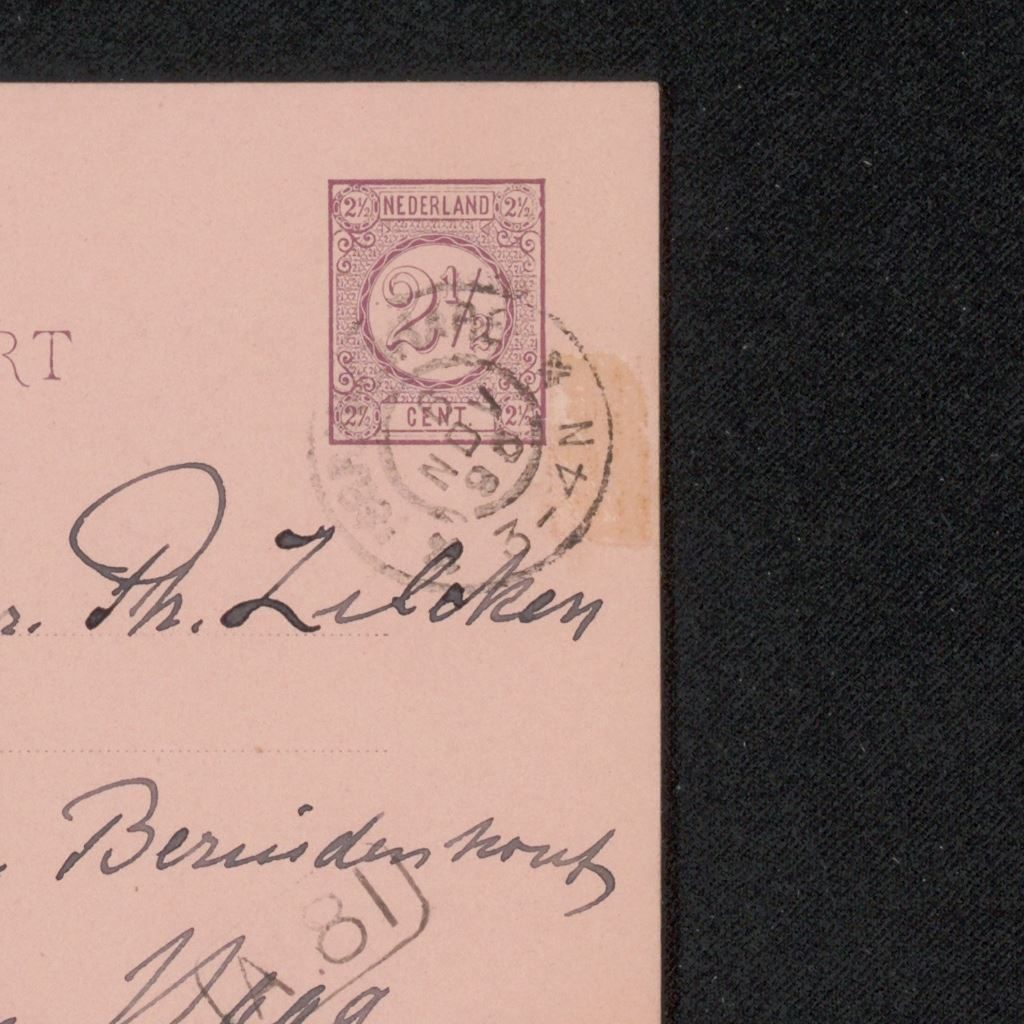 2½ NEDERLAND 2½
2½
2½ CENT 2½
RT
NOV
3-4N
r. Ph. Zilcken
Bezuidenhout
Haag
A.81